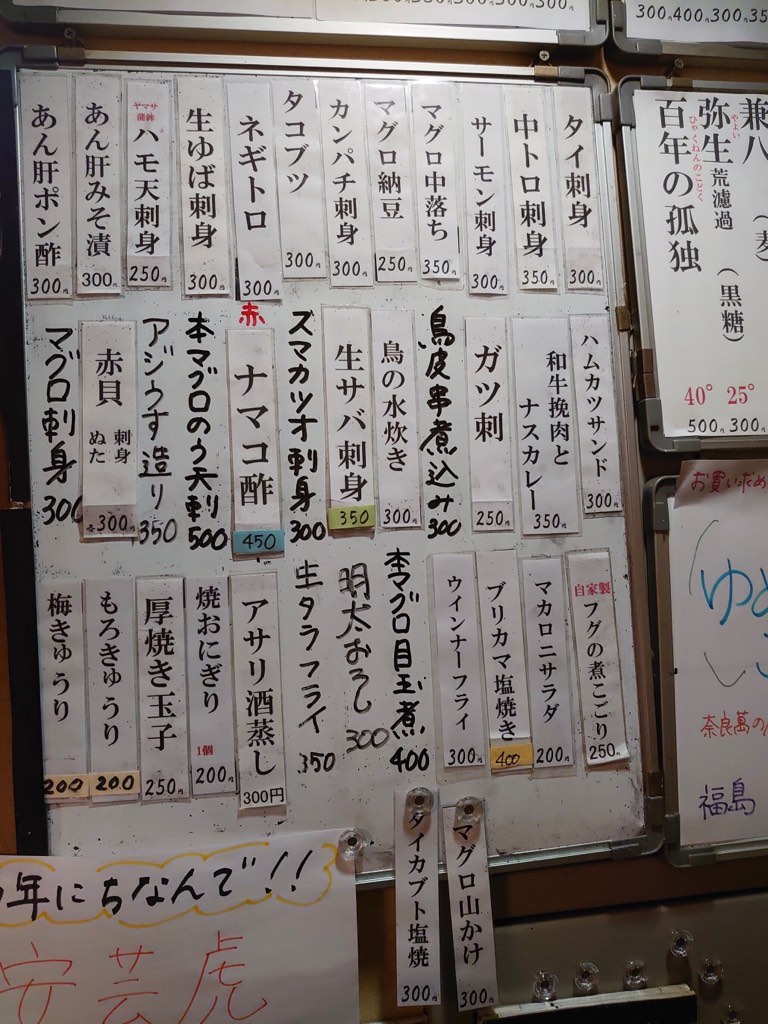 300円400円300円35
タイ刺身 300円
中トロ刺身 350円
サーモン刺身 300円
マグロ中落ち 350円
マグロ納豆 250円
カンパチ刺身 300円
タコブツ 300円
ネギトロ 300円
生ゆば刺身 300円
ヤマサ蒲鉾
ハモ天刺身 250円
あん肝みそ漬 300円
あん肝ポン酢 300円
ハムカツサンド 300円
和牛挽肉と
ナスカレー 350円
ガツ刺 250円
鳥皮串煮込み 300
鳥の水炊き 300円
生サバ刺身 350
スマカツオ刺身 300
赤ナマコ酢 450
本マグロのう天刺 500
アジうす造り 350
赤貝 刺身 ぬた 各300円
マグロ刺身 300
自家製
フグの煮こごり 250円
マカロニサラダ 200円
ブリカマ塩焼き 400
ウインナーフライ 300円
本マグロ目玉煮 400
明太おろし 300
生タラフライ 350
アサリ酒蒸し 300円
焼おにぎり 1個 200円
厚焼き玉子 250円
もろきゅうり 200
梅きゅうり 200
マグロ山かけ 300円
タイカブト塩焼 300円
兼八 (麦)
弥生 荒濾過 (黒糖)
やよい
百年の孤独
ひゃくねんのこどく
40° 25°
500円 300円
お買いだめ
ゆめ
奈良萬の
福島
年にちなんで!!
安芸虎